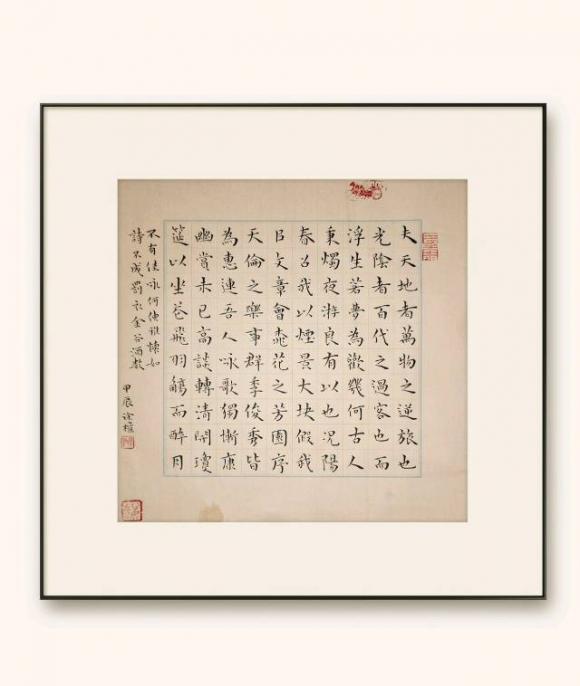 夫天地者萬物之逆旅也
光陰者百代之過客也而
浮生若夢為歡幾何古人
秉燭夜游良有以也況陽
春召我以煙景大块假我
㠯文章會桃花之芳園序
天倫之樂事群季俊秀皆
為惠連吾人咏歌獨慚康
幽賞未已高談轉清開瓊
筵以坐花飛羽觴而醉月
不有佳咏何伸雅懷如
詩不成罰依金谷酒數
甲辰